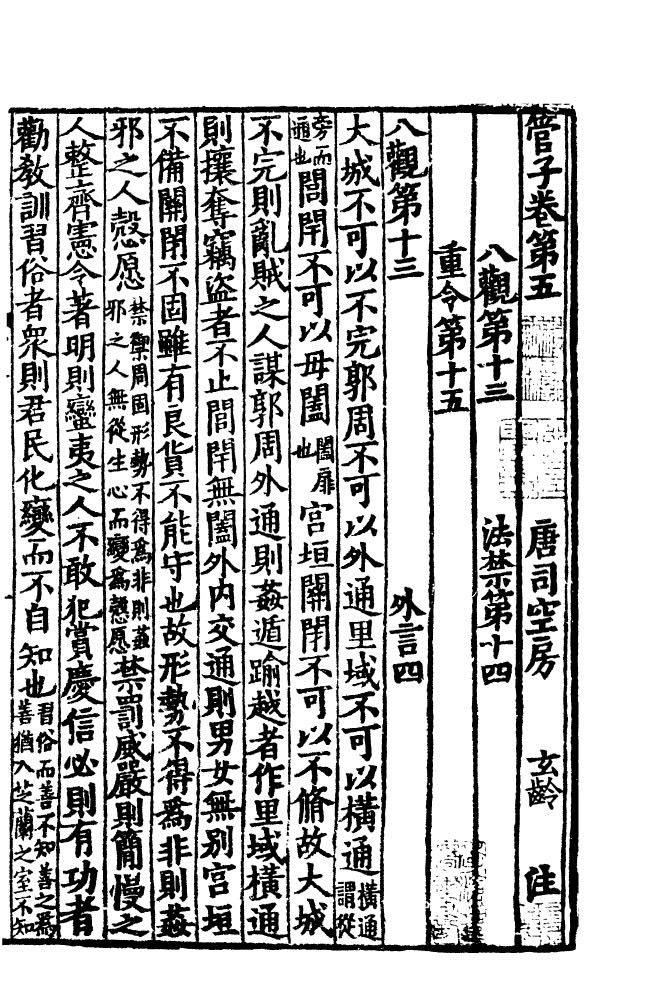 管子卷第五 唐司空房 玄齡 注
八觀第十三 法禁第十四
重令第十五
八觀第十三 外言四
大城不可以不完郭周不可以外通里域不可以橫通橫通謂從
旁而通也閭閈不可以毋闔闔扉也宮垣關閉不可以不脩故大城
不完則亂賊之人謀郭周外通則姦遁踰越者作里域橫通
則攘奪竊盜者不止閭閈無闔外內交通則男女無别宮垣
不備關閉不固雖有良貨不能守也故形勢不得爲非則姦
邪之人慤愿禁禦周固形勢不得爲非則姦邪之人無從生心而變爲慤愿禁罰威嚴則簡慢之
人整齊憲令著明則蠻夷之人不敢犯賞慶信必則有功者
勸教訓習俗者衆則君民化變而不自知也習俗而善不知善之爲善猶入芝蘭之室不知